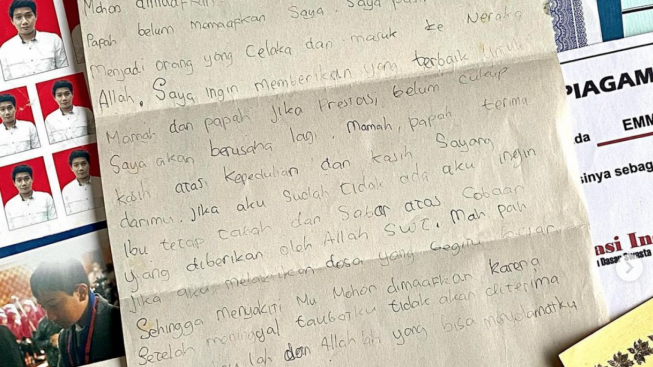 Mohon dimaafkan
Papah belum memaafkan Saya. Saya
menjadi orang yang Celaka dan masuk ke Neraka
Allah. Saya ingin memberikan yang terbaik untuk
Mamah dan papah Jika Prestasi belum cukup
Saya akan berusaha lagi. Mamah, papah terima
kasih atas kepedulian dan kasih Sayang
darimu. Jika aku Sudah tidak ada aku ingin
Ibu tetap tabah dan Sabar atas Cobaan
yang diberikan oleh Allah SWT. Mah pah
Jika aku melakukan dosa yang begitu
Sehingga menyakiti Mu Mohon dimaafkan karena
Setelah meninggal taubatku tidak akan diterima
lah dan Allah lah yang bisa menyelamatku
PIAGAM
da EMM
sinya sebag
asi In
Dasar Swasta